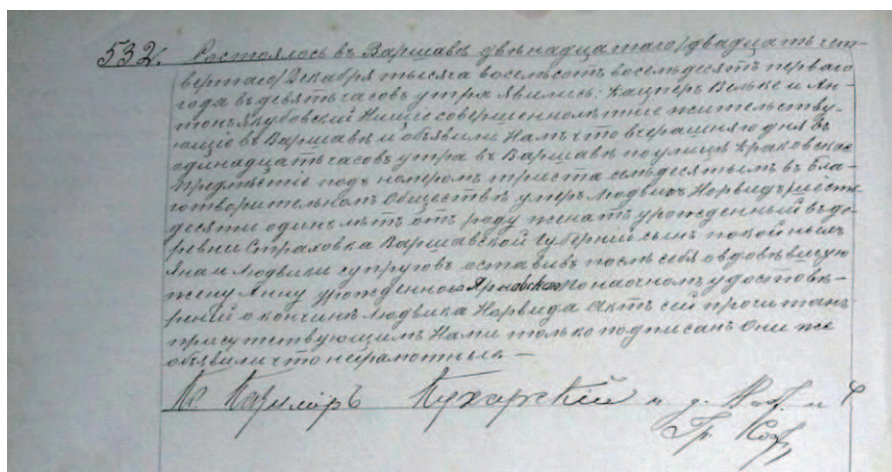 532. Состоялось въ Варшавѣ двѣнадцатаго/двадцать чет-
вертаго/Декабря тысяча восемьсотъ восемьдесятъ перваго
года въ девять часовъ утра явились: Кацперъ Велькъ и Ан-
тонъ Якубовский Нищіе совершеннолѣтніе жительству-
ющіе въ Варшавѣ и объявили Намъ что вчерашняго дня въ
одинадцать часовъ утра въ Варшавѣ по улицѣ Краковское
Предмѣстіе подъ номеромъ триста семьдесятымъ въ Бла-
готворительномъ Обществѣ умеръ Людвикъ Норвидъ шесть-
десяти одинъ лѣтъ отъ роду женатъ урожденный въ де-
ревни Страховка Варшавской Губерній сынъ покойныхъ
Яна и Людвики супруговъ оставивъ послѣ себя овдовѣвшую
жену Анну урожденною По наочномъ удостовѣ-
реній о кончинѣ Людвика Норвида Актъ сей прочитанъ
присутствующимъ Нами только подписанъ Они же
объявили что неграмотны —
Кс. Казиміръ Кухарскій и. д.